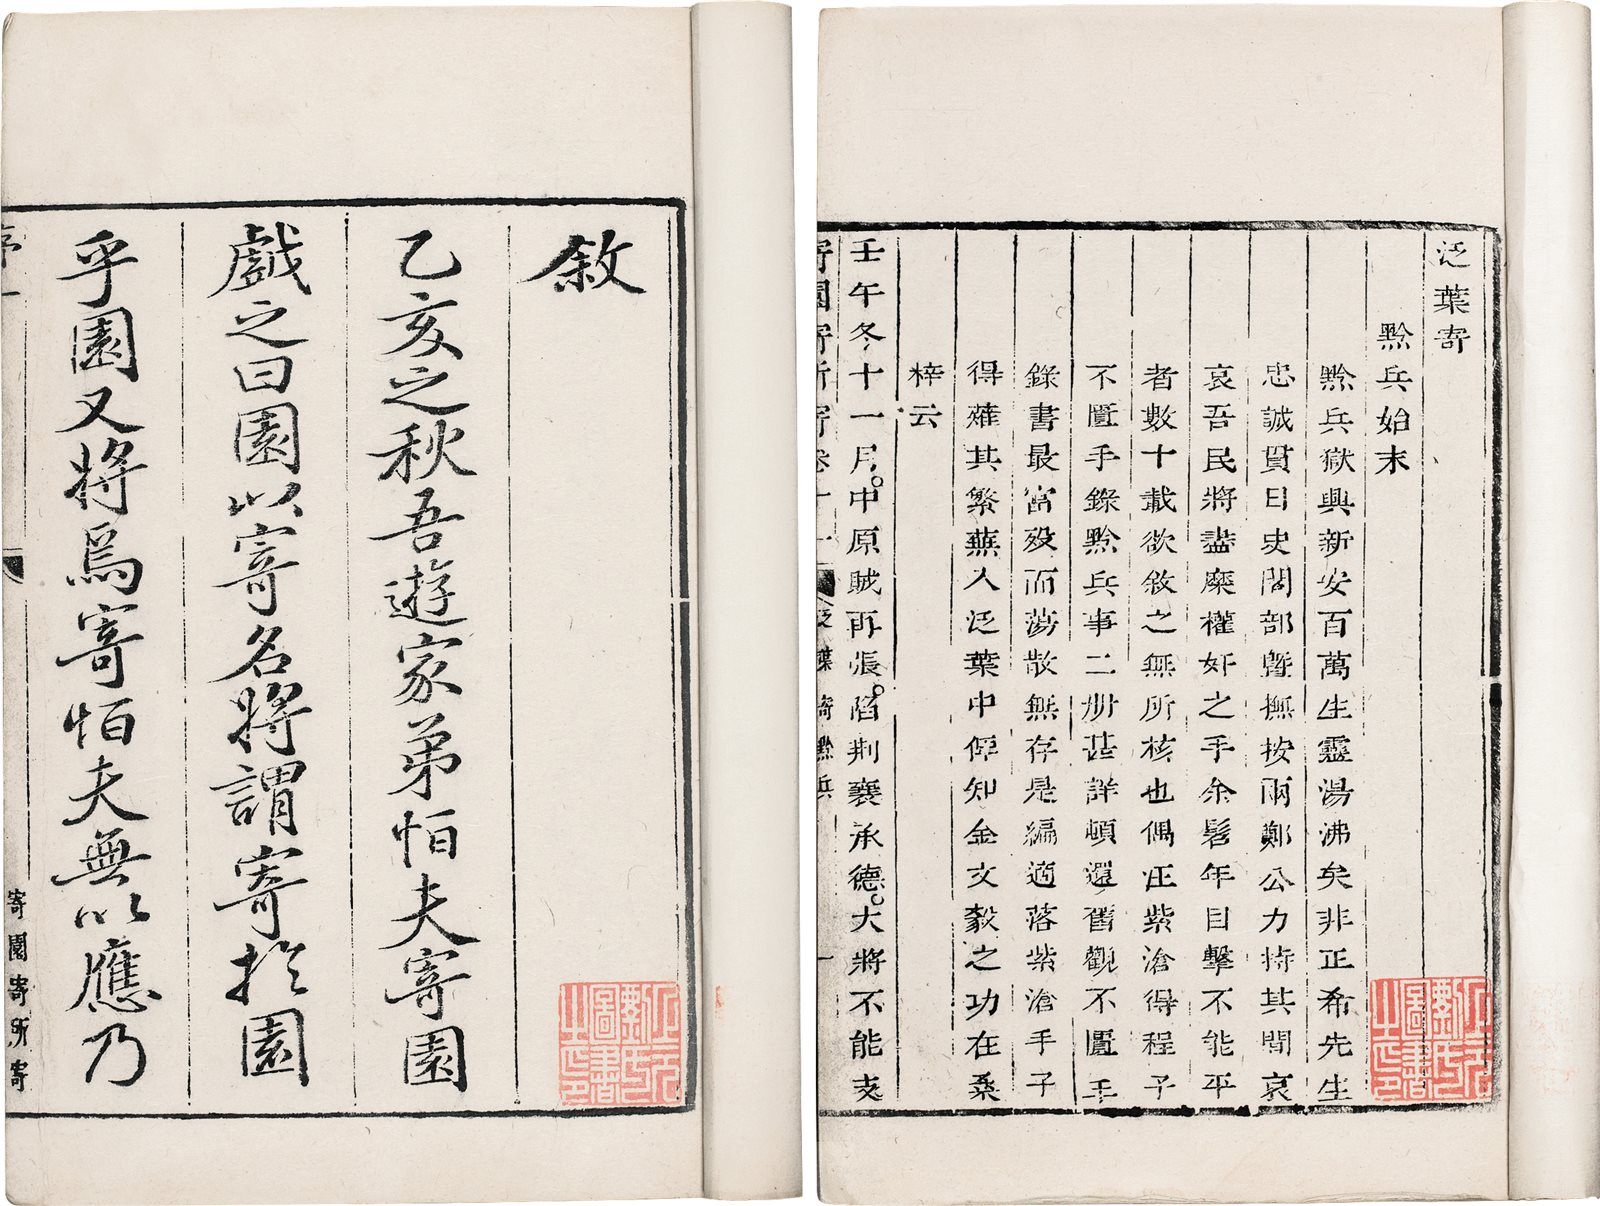 敘
乙亥之秋吾遊家弟怕夫寄園
戲之曰園以寄名將謂寄於園
乎園又將爲寄怕夫無以應乃
序一
寄園寄所寄
泛葉寄
黔兵始末
黔兵獄興新安百萬生靈湯沸矣非正希先生
忠誠貫日史閣部曁撫按兩鄭公力持其間哀
哀吾民將盡麋權奸之手余髫年目擊不能平
者數十載欲敘之無所核也偶从紫滄得程子
不匱手錄黔兵事二册甚詳頓還舊觀不匱手
錄書最富歿而蕩散無存是編適落紫滄手予
得薙其繁蕪入泛葉中俾知金文毅之功在桑
梓云
壬午冬十一月中原賊再張陷荆襄承德大將不能支
寄園寄所寄卷十一 泛葉寄黔兵 一